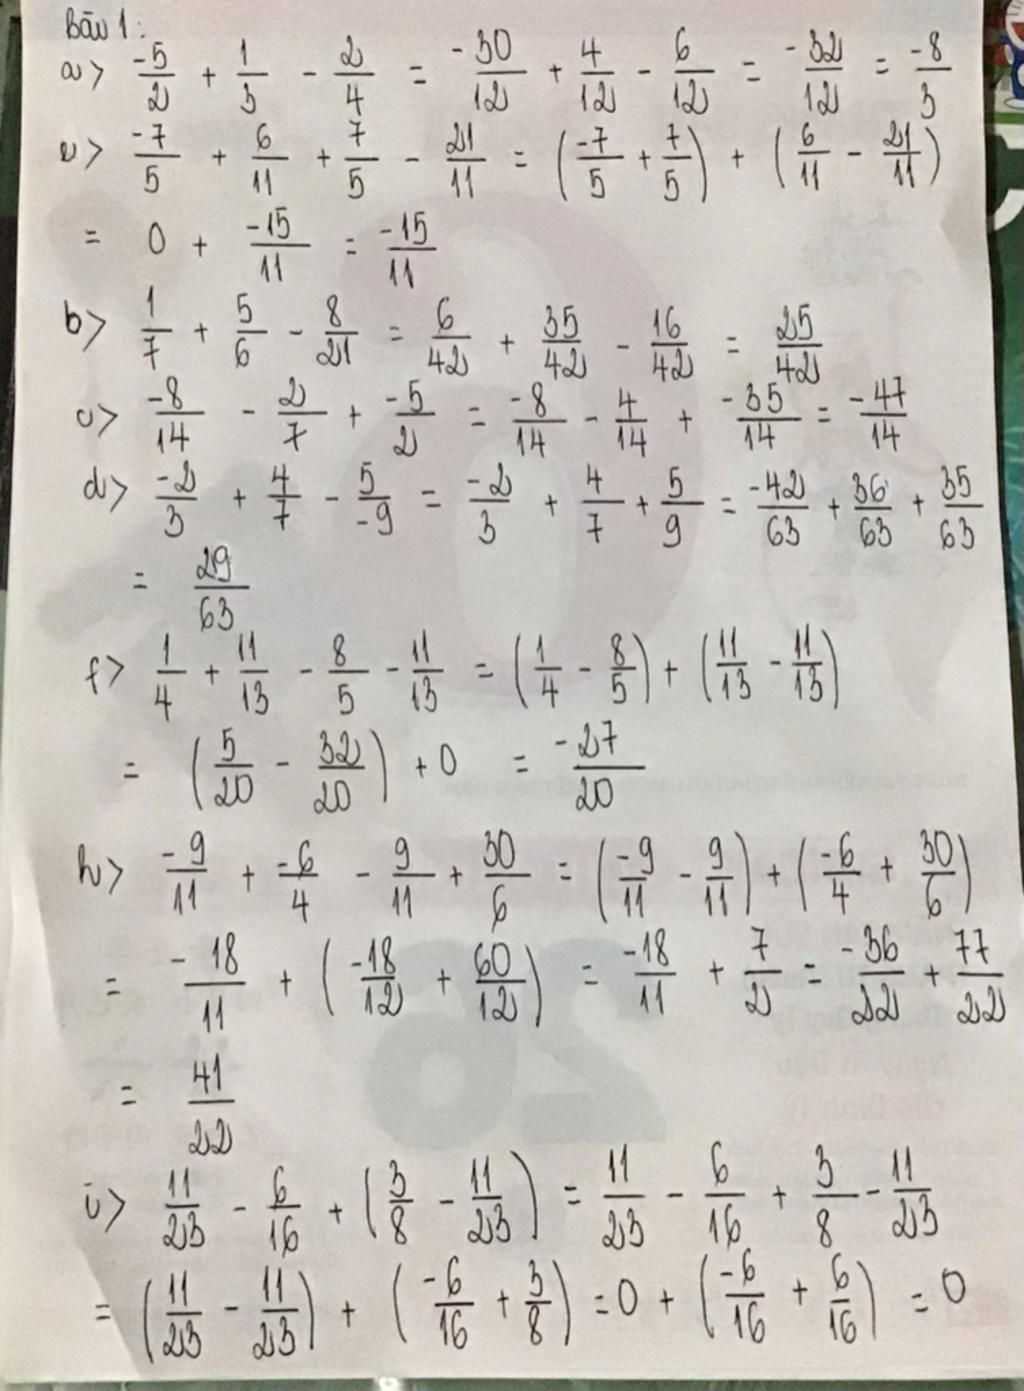 Bài 1:
a> -5/2 + 1/3 - 2/4 = -30/12 + 4/12 - 6/12 = -32/12 = -8/3
e> -7/5 + 6/11 + 7/5 - 21/11 = (-7/5 + 7/5) + (6/11 - 21/11)
= 0 + -15/11 = -15/11
b> 1/7 + 5/6 - 8/21 = 6/42 + 35/42 - 16/42 = 25/42
c> -8/14 - 2/7 + -5/2 = -8/14 - 4/14 + -35/14 = -47/14
d> -2/3 + 4/7 - 5/-9 = -2/3 + 4/7 + 5/9 = -42/63 + 36/63 + 35/63
= 29/63
f> 1/4 + 11/13 - 8/5 - 11/13 = (1/4 - 8/5) + (11/13 - 11/13)
= (5/20 - 32/20) + 0 = -27/20
h> -9/11 + -6/4 - 9/11 + 30/6 = (-9/11 - 9/11) + (-6/4 + 30/6)
= -18/11 + (-18/12 + 60/12) = -18/11 + 7/2 = -36/22 + 77/22
= 41/22
i> 11/23 - 6/16 + (3/8 - 11/23) = 11/23 - 6/16 + 3/8 - 11/23
= (11/23 - 11/23) + (-6/16 + 3/8) = 0 + (-6/16 + 6/16) = 0